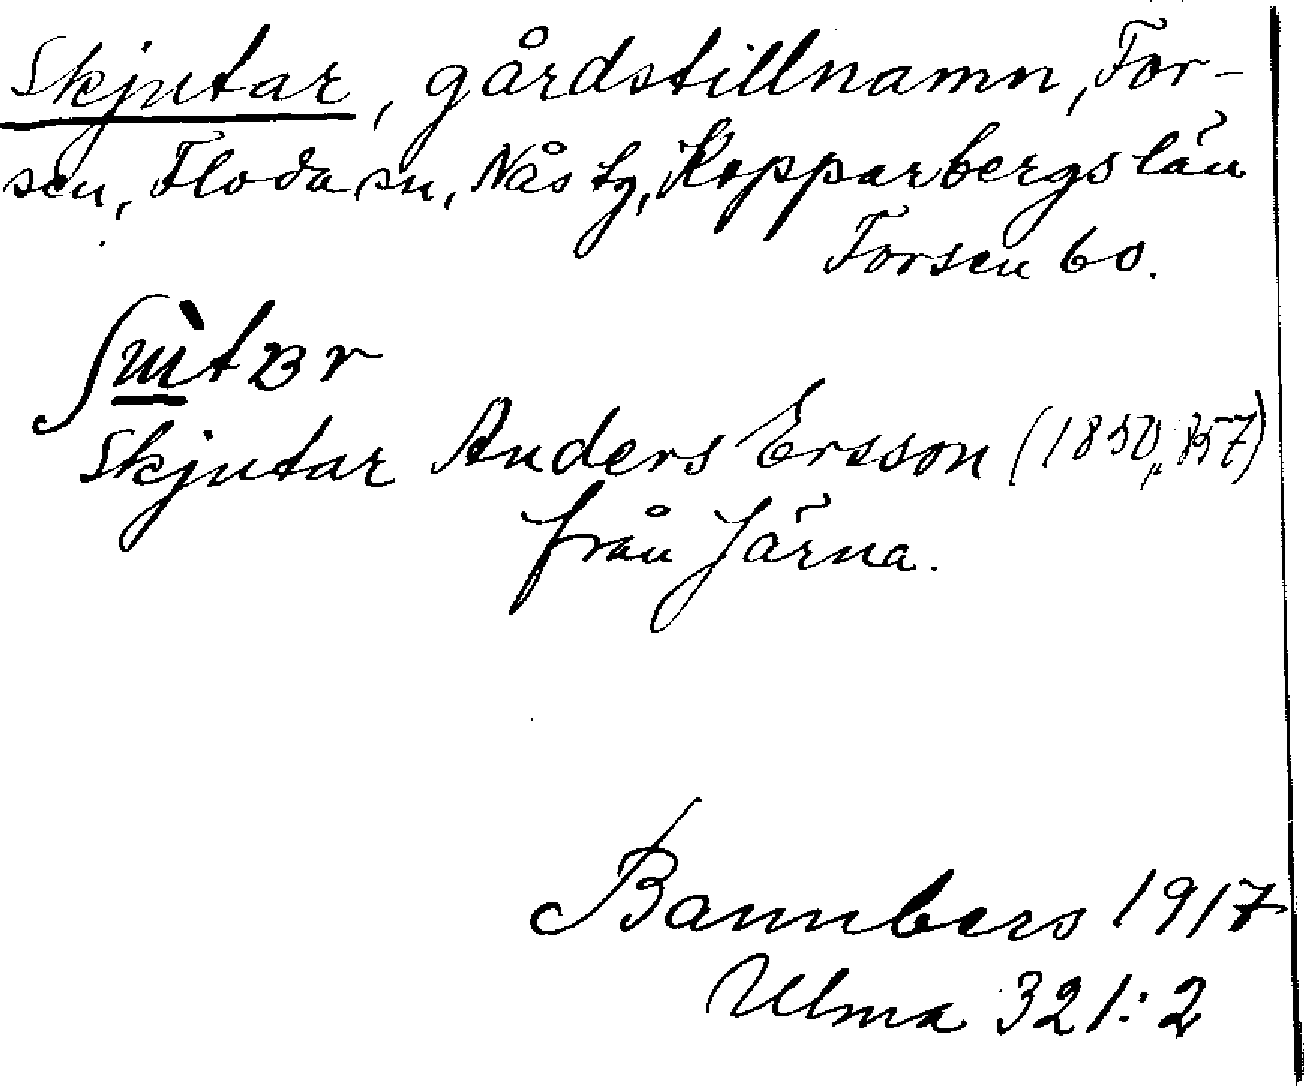 Skjutar, gårdstillnamn, For-
sen, Floda sn, Nås tg, Kopparbergs län
Forsen 60.
Skjutar Anders Ersson (1850, 857)
från Järna.
Bannbers 1917
Ulma 321:2